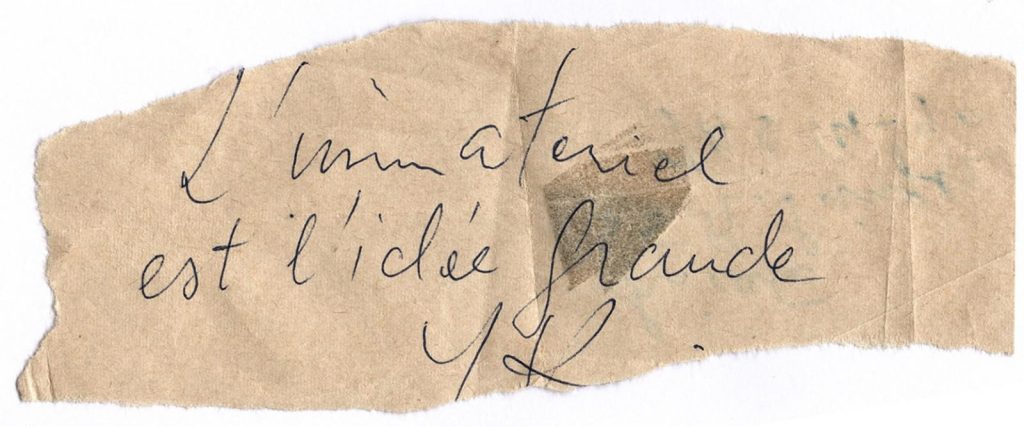 L'immateriel
est l'idée grande
YK.